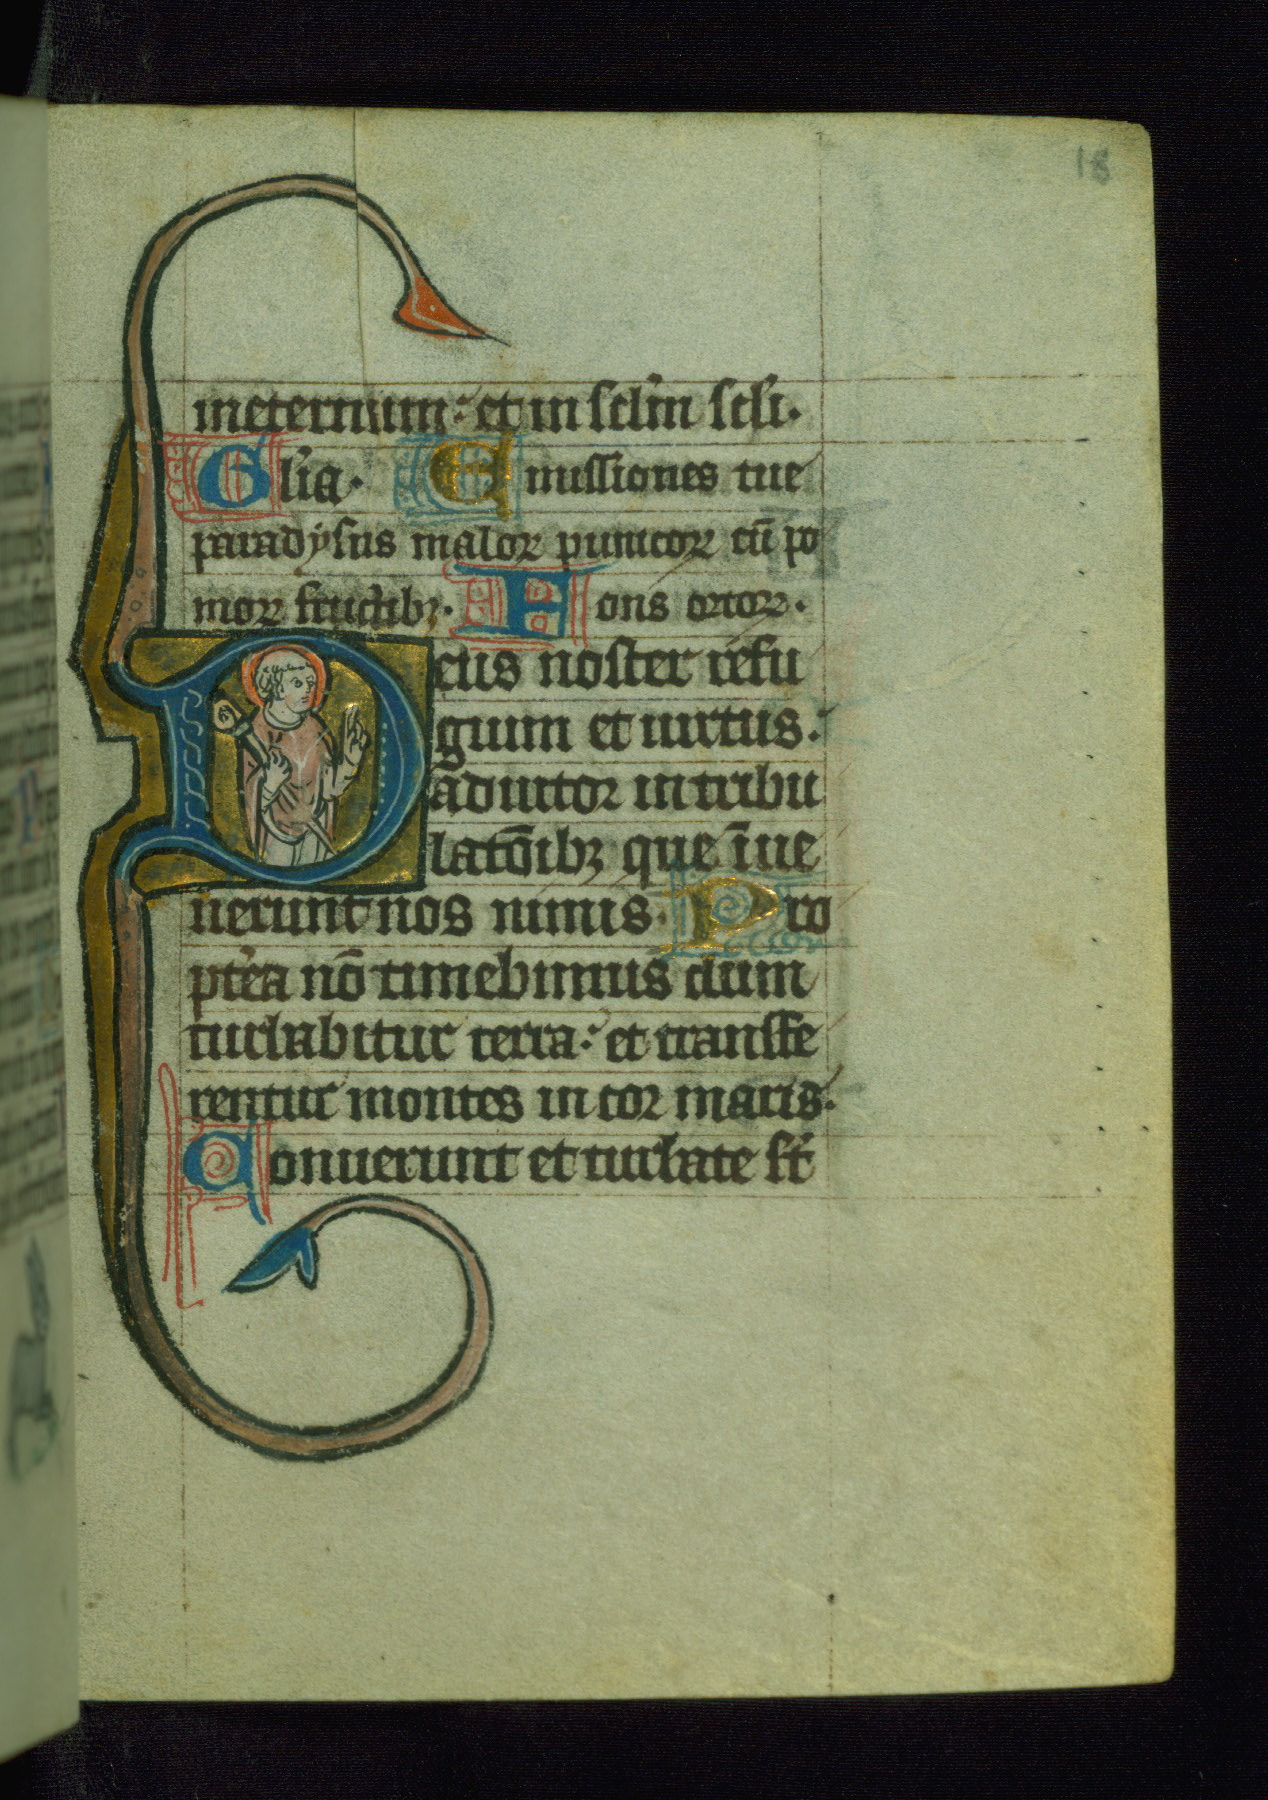 18
ineternum: et in sclm̄ scłi.
Głia. Emissiones tue
paradysus maloꝝ punicoꝝ cū po
moꝝ fructibꝫ. Fons ortoꝝ.
Deus noster refu
gium et uirtus:
adiutor in tribu
latōibꝫ que īue
nerunt nos nimis. Pro
pt̃ea nō timebimus dum
turbabitur terra: et transfe
rentur montes in cor maris.
Sonuerunt et turbate st̄